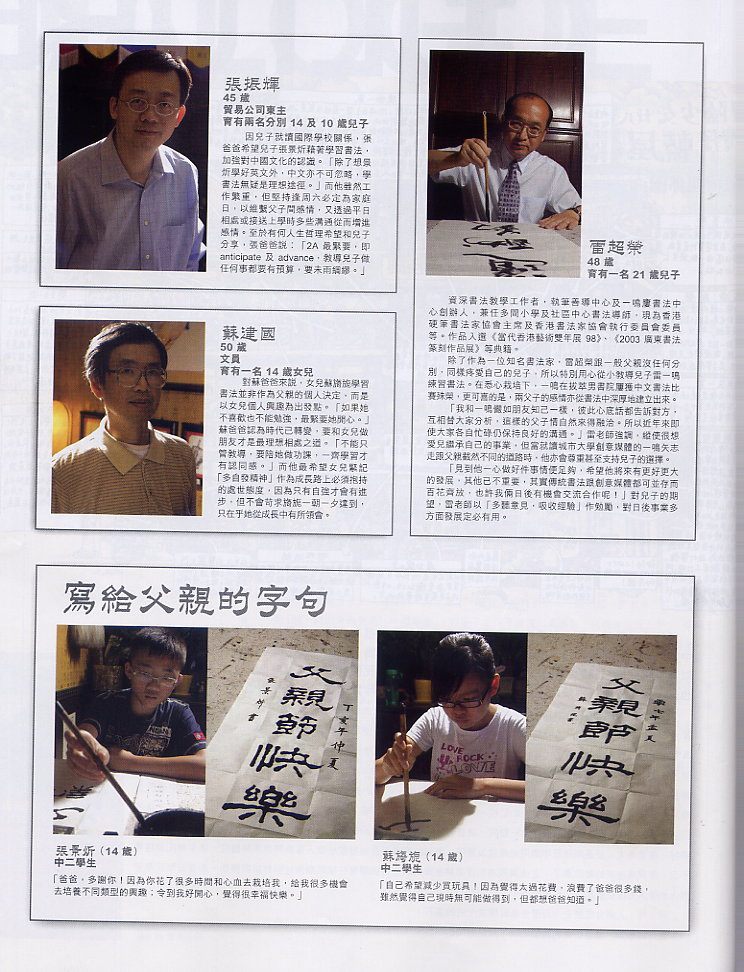 張振輝
45 歲
貿易公司東主
育有兩名分別 14 及 10 歲兒子
因兒子就讀國際學校關係，張
爸爸希望兒子張景炘藉著學習書法，
加強對中國文化的認識。「除了想景
炘學好英文外，中文亦不可忽略，學
書法無疑是理想途徑。」而他雖然工
作繁重，但堅持逢周六必定為家庭
日，以維繫父子間感情，又透過平日
相處或接送上學時多些溝通從而增進
感情。至於有何人生哲理希望和兒子
分享，張爸爸說：「2A 最緊要，即
anticipate 及 advance，教導兒子做
任何事都要有預算，要未雨綢繆。」
蘇建國
50 歲
文員
育有一名 14 歲女兒
對蘇爸爸來說，女兒蘇旖旎學習
書法並非作為父親的個人決定，而是
以女兒個人興趣為出發點。「如果她
不喜歡也不能勉強，最緊要她開心。」
蘇爸爸認為時代已轉變，要和女兒做
朋友才是最理想相處之道。「不能只
管教導，要陪她做功課，一齊學習才
有認同感。」而他最希望女兒緊記
「多自發精神」作為成長路上必須抱持
的處世態度，因為只有自強才會有進
步，但不會苛求旖旎一朝一夕達到，
只在乎她從成長中有所領會。
雷超榮
48 歲
育有一名 21 歲兒子
資深書法教學工作者，執筆善導中心及一鳴廔書法中
心創辦人，兼任多間小學及社區中心書法導師，現為香港
硬筆書法家協會主席及香港書法家協會執行委員會委員
等。作品入選《當代香港藝術雙年展 98》、《2003 廣東書法
篆刻作品展》等典籍。
除了作為一位知名書法家，雷超榮跟一般父親沒任何分
別，同樣疼愛自己的兒子，所以特別用心從小教導兒子雷一鳴
練習書法。在悉心栽培下，一鳴在拔萃男書院屢獲中文書法比
賽殊榮，更可喜的是，兩父子的感情亦從書法中深厚地建立出來。
「我和一鳴儼如朋友知己一樣，彼此心底話都告訴對方，
互相替大家分析，這樣的父子情自然來得融洽。所以近年來即
使大家各自忙碌仍保持良好的溝通。」雷老師強調，縱使很想
愛兒繼承自己的事業，但當就讀城市大學創意媒體的一鳴矢志
走跟父親截然不同的道路時，他亦會尊重甚至支持兒子的選擇。
「見到他一心做好件事情便足夠，希望他將來有更好更大
的發展，其他已不重要，其實傳統書法跟創意媒體都可並存而
百花齊放，也許我倆日後有機會交流合作呢！」對兒子的期
望，雷老師以「多聽意見，吸收經驗」作勉勵，對日後事業多
方面發展定必有用。
寫給父親的字句
父親節快樂
丁亥年仲夏
張景炘書
LOVE
ROCK
LOVE
父親節快樂
張景炘（14 歲）
中二學生
「爸爸，多謝你！因為你花了很多時間和心血去栽培我，給我很多機會
去培養不同類型的興趣；令到我好開心，覺得很幸福快樂。」
蘇旖旎（14 歲）
中二學生
「自己希望減少買玩具！因為覺得太過花費，浪費了爸爸很多錢，
雖然覺得自己現時無可能做得到，但都想爸爸知道。」